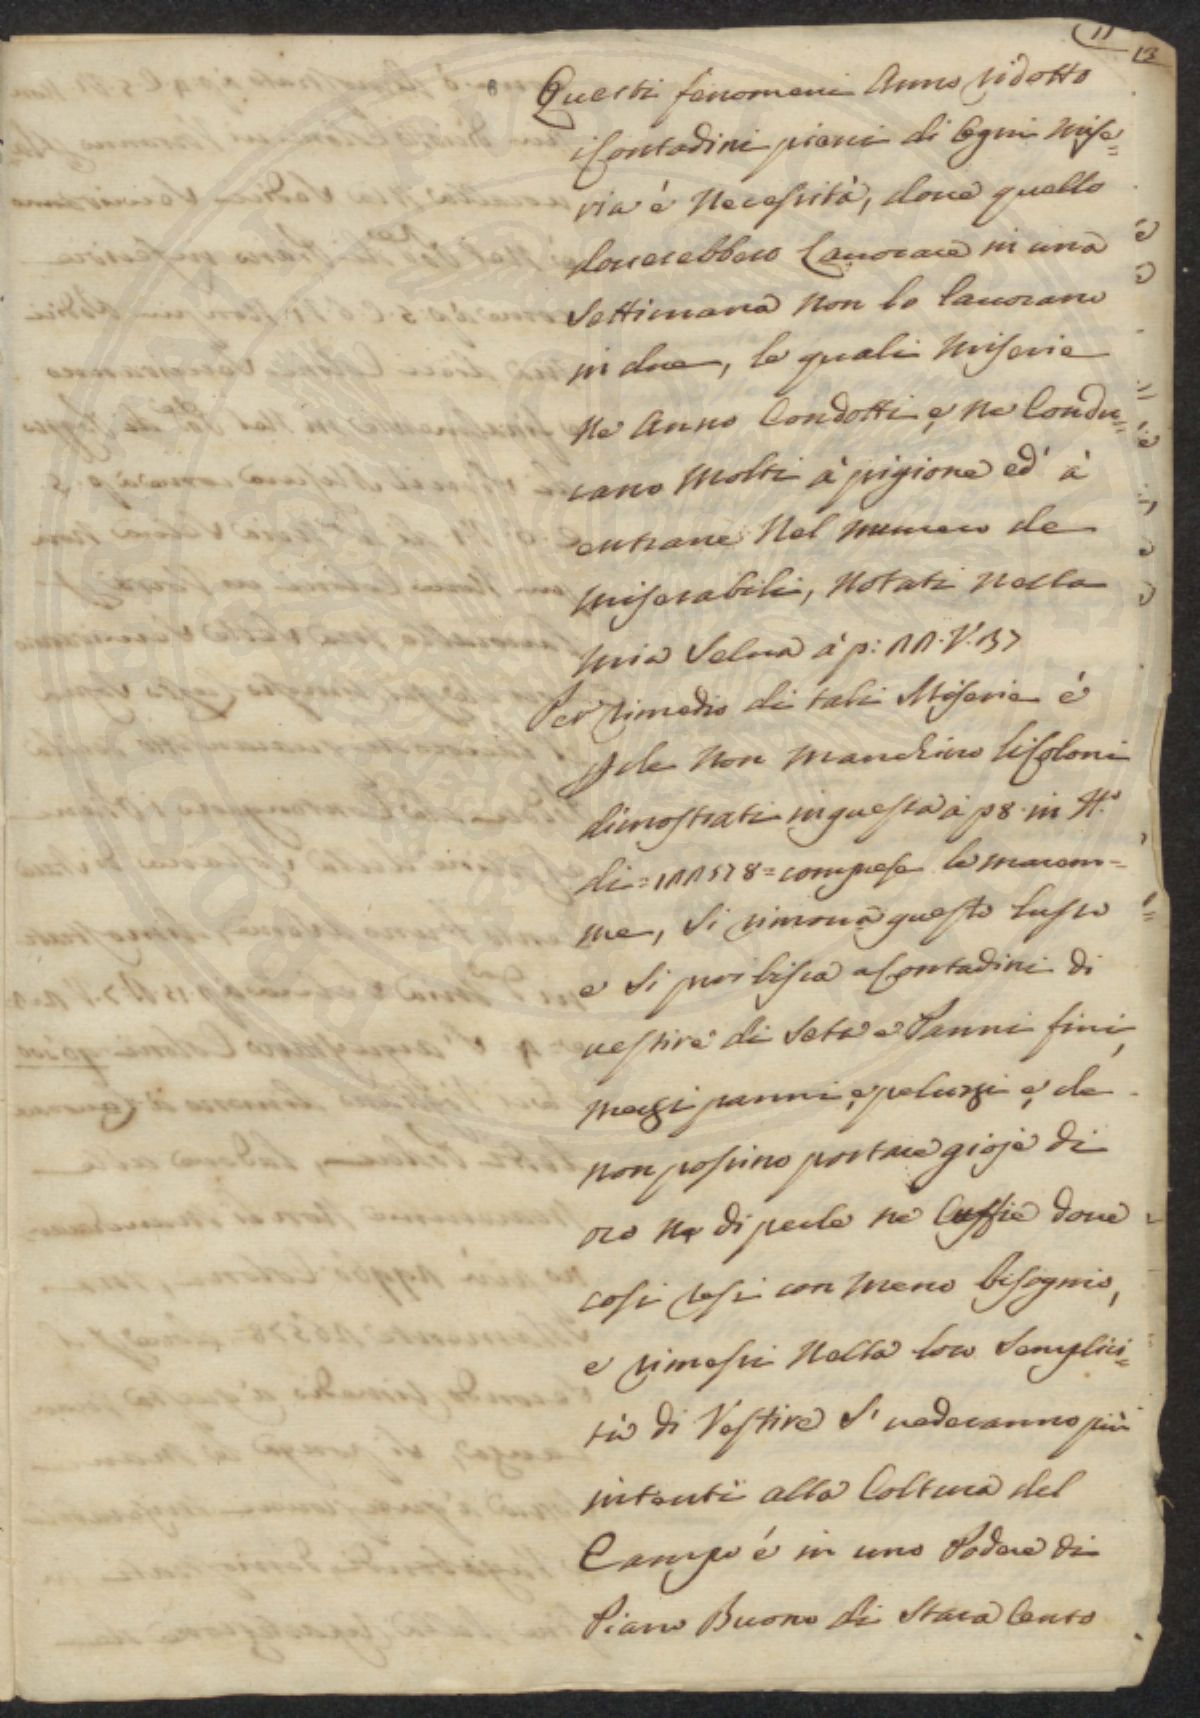 11
13
Questi fenomeni Anno ridotto
i Contadini pieni di Ogni Mise=
ria é Necessità, doue quello
douerebbero Lauorare in una
Settimana non lo lauorano
in due, le quali Miserie
Ne Anno Condotti e Ne Condu=
cano Molti à pigione ed' à
entrare Nel numero de
Miserabili, Notati nella
mia Selua à p:
Per rimedio di tali Miserie é
che Non Manchino li Coloni
dimostrati in questa à p 8. in N.º
di = comprese le marem=
me, Si rimoua questo lusso
e Si proibisca a Contadini di
uestire di Seta e Panni fini,
mezzi panni, e peluzzi e, che
non possino portare gioje di
oro Ne di perle ne Cuffie doue
cosi resi con meno bisognio,
e rimessi Nella loro Semplici=
tà di Vestire S' uederanno più
intenti alla Coltura del
Campo é in uno Podere di
Piano Buono di Staia Cento